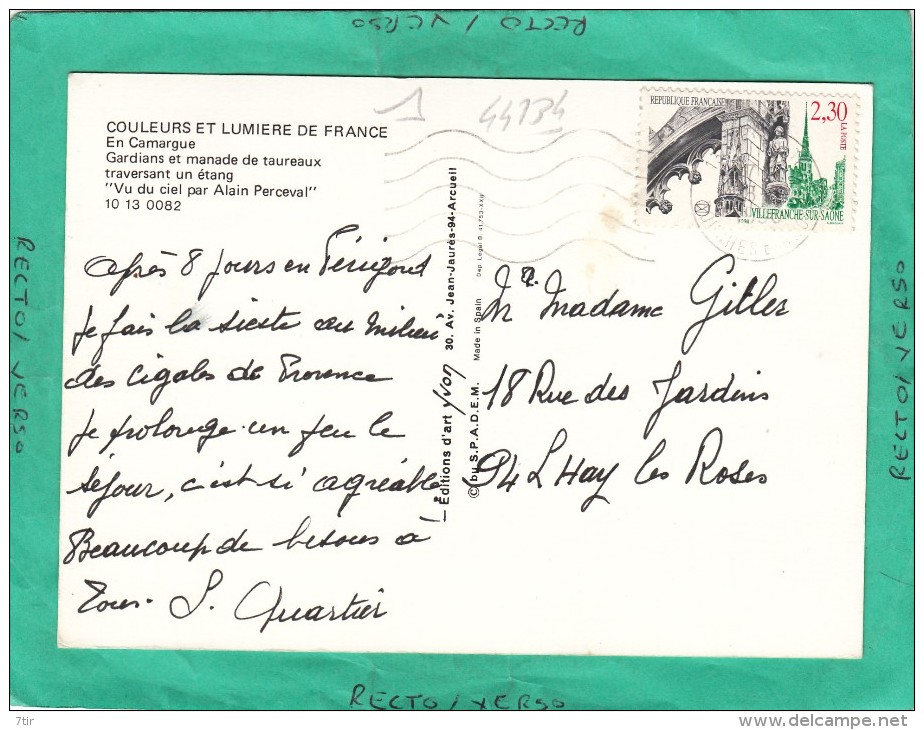 RECTO / VERSO
1
44734
COULEURS ET LUMIERE DE FRANCE
En Camargue
Gardians et manade de taureaux
traversant un étang
"Vu du ciel par Alain Perceval"
10 13 0082
REPUBLIQUE FRANÇAISE
2,30
LA POSTE
VILLEFRANCHE-SUR-SAÔNE
Après 8 jours en Périgord
Je fais la sieste au milieu
des cigales de Provence
Je prolonge un peu le
séjour, c'est si agréable
Beaucoup de bisous à
Tous. S. Quartier
Éditions d'art Yvon 30. Av. Jean-Jaurès-94-Arcueil
© by S.P.A.D.E.M. Made in Spain Dep. Legal B. 41.753-XXII
Mr. Madame Giller
18 Rue des Jardins
94 L Hay les Roses
RECTO / VERSO
RECTO / VERSO
RECTO / VERSO
7tir
www.delcampe.net